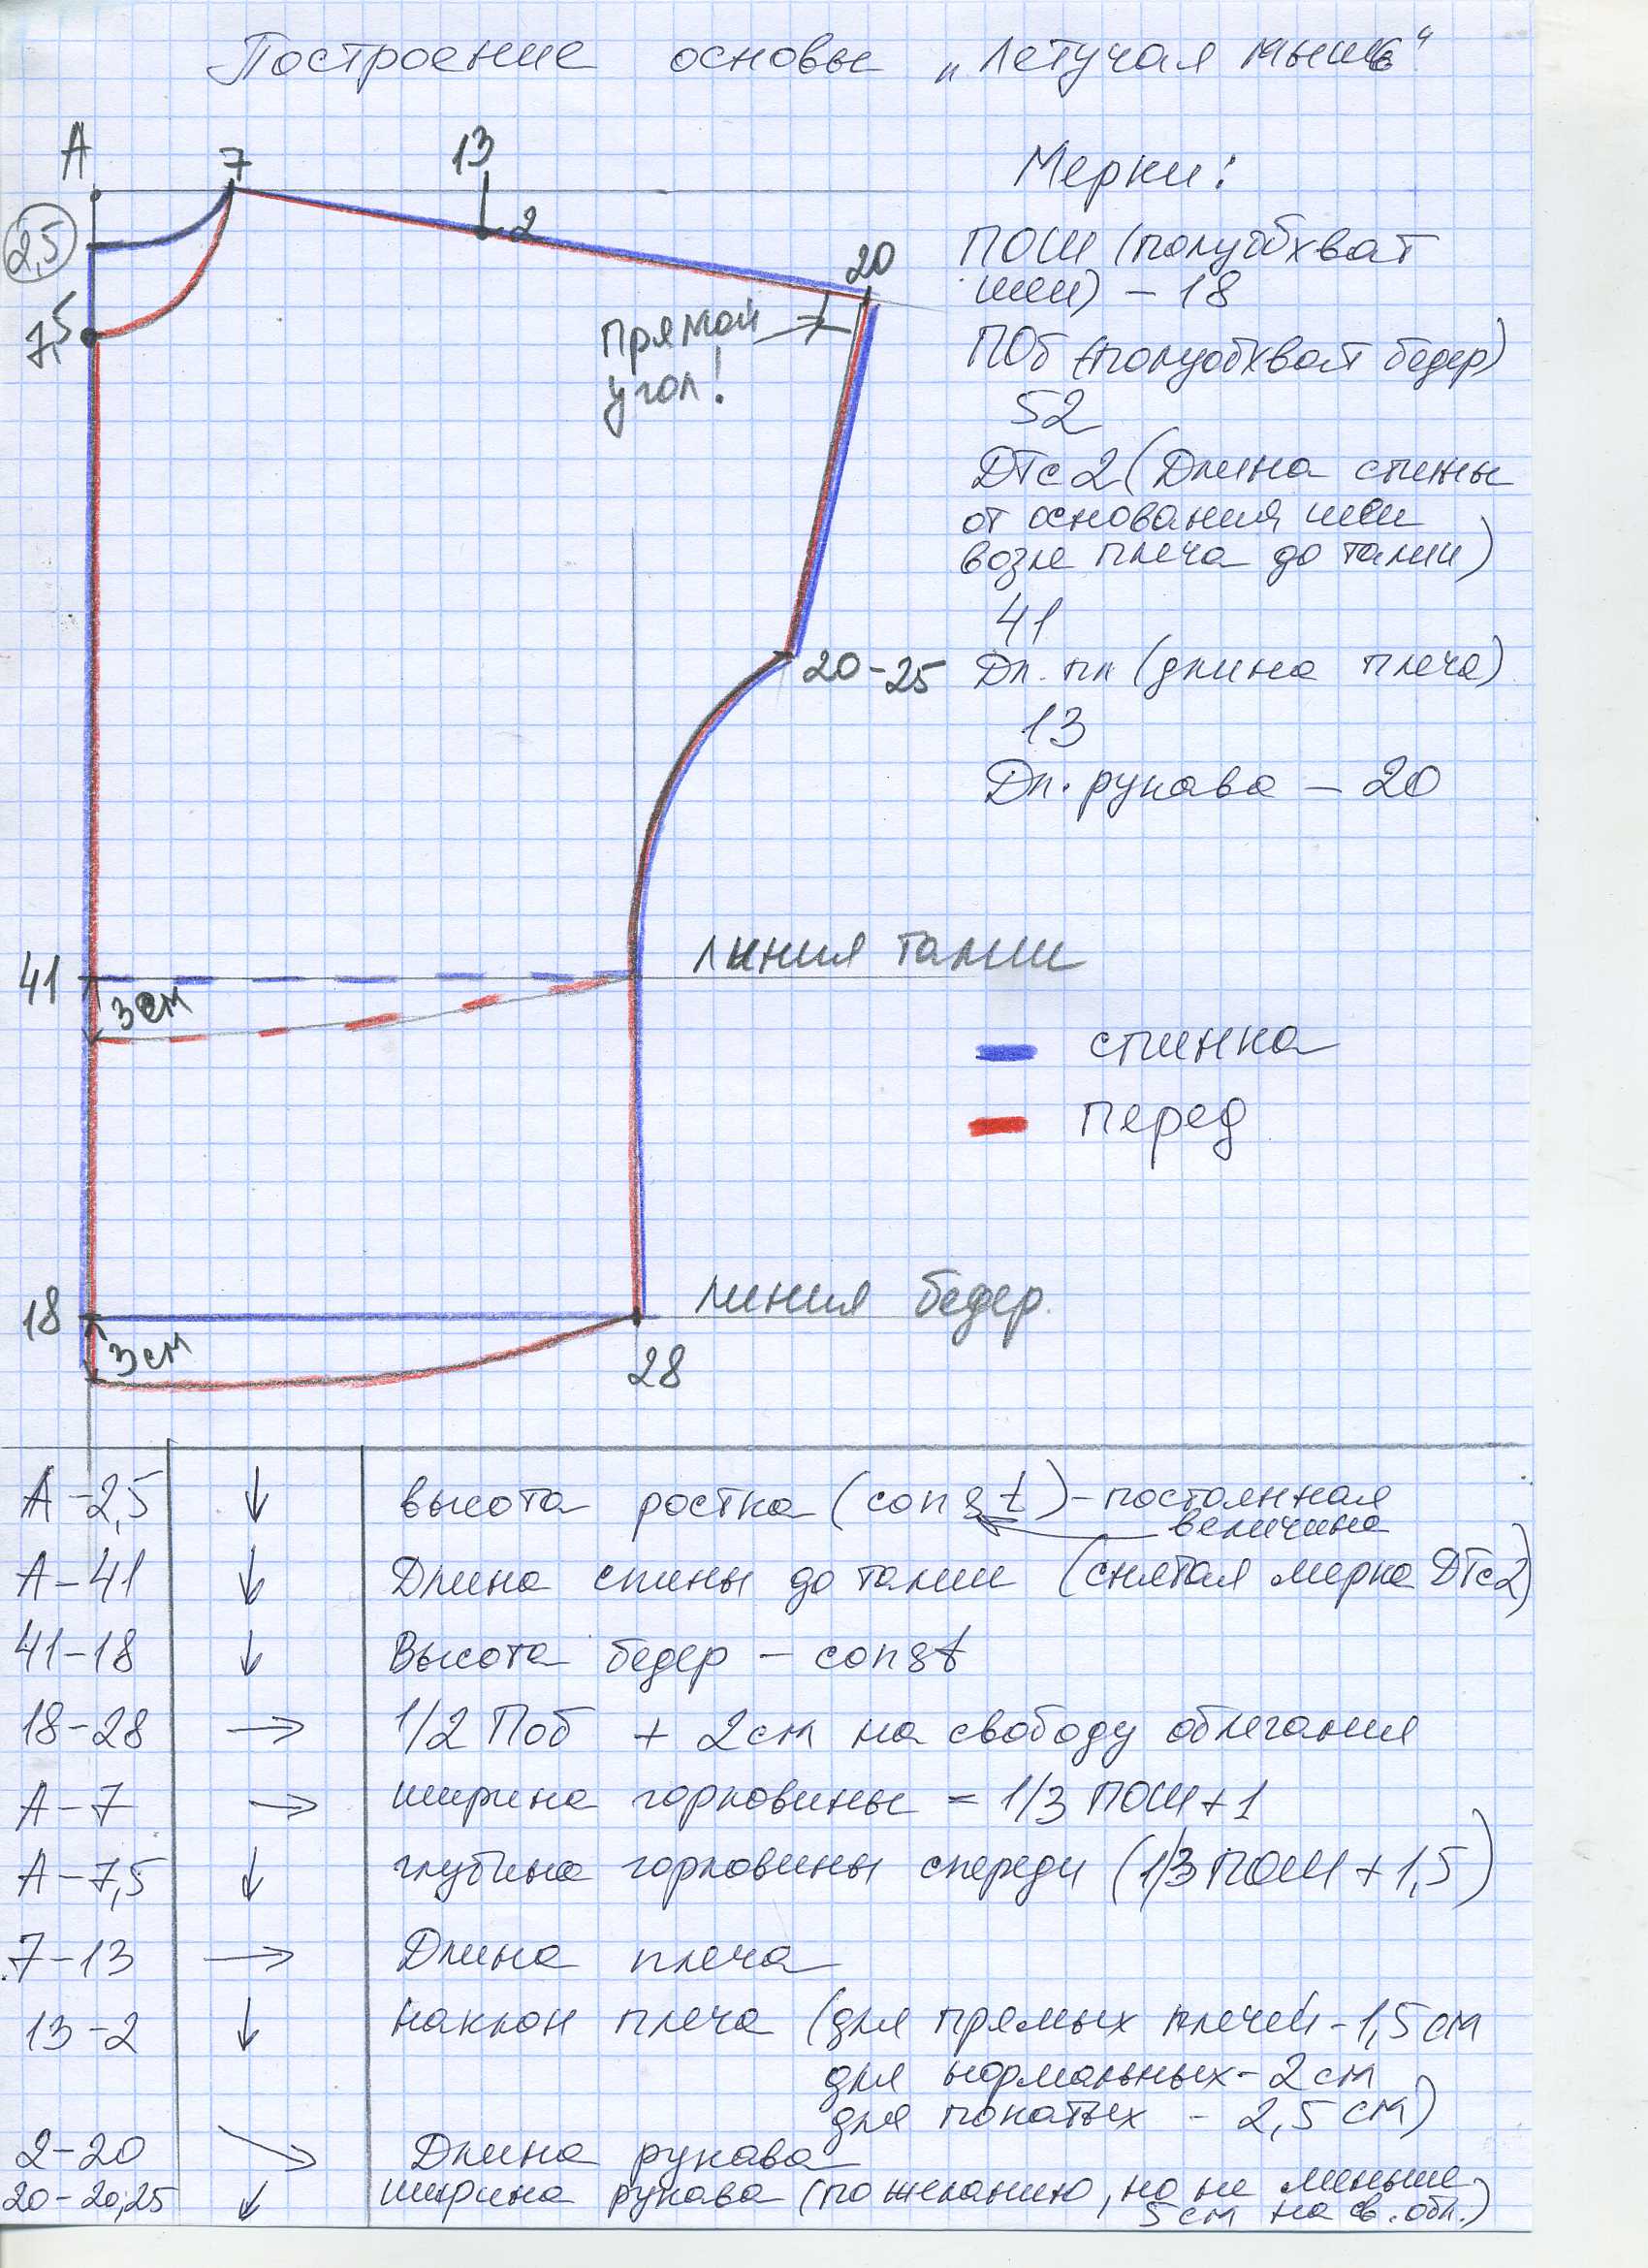 Построение основы „Летучая мышь“
А
7
13
2
2,5
7,5
20
прямой
угол!
20-25
41
3 см
линия талии
18
3 см
линия бедер.
28
Мерки:
ПОШ (полуобхват
шеи) – 18
ПОб (полуобхват бедер)
52
ДТс2 (Длина спины
от основания шеи
возле плеча до талии)
41
Дл. пл (длина плеча)
13
Дл. рукава – 20
спинка
перед
А-2,5 ↓ высота ростка (const) - постоянная
величина
А-41 ↓ Длина спины до талии (снятая мерка ДТс2)
41-18 ↓ Высота бедер – const
18-28 → 1/2 Поб + 2 см на свободу облегания
А-7 → ширина горловины = 1/3 ПОШ + 1
А-7,5 ↓ глубина горловины спереди (1/3 ПОШ + 1,5)
7-13 → Длина плеча
13-2 ↓ наклон плеча (для прямых плечей - 1,5 см
для нормальных - 2 см
для покатых - 2,5 см)
2-20 ↘ Длина рукава
20-20,25 ↓ ширина рукава (по желанию, но не меньше
5 см на св. обл.)